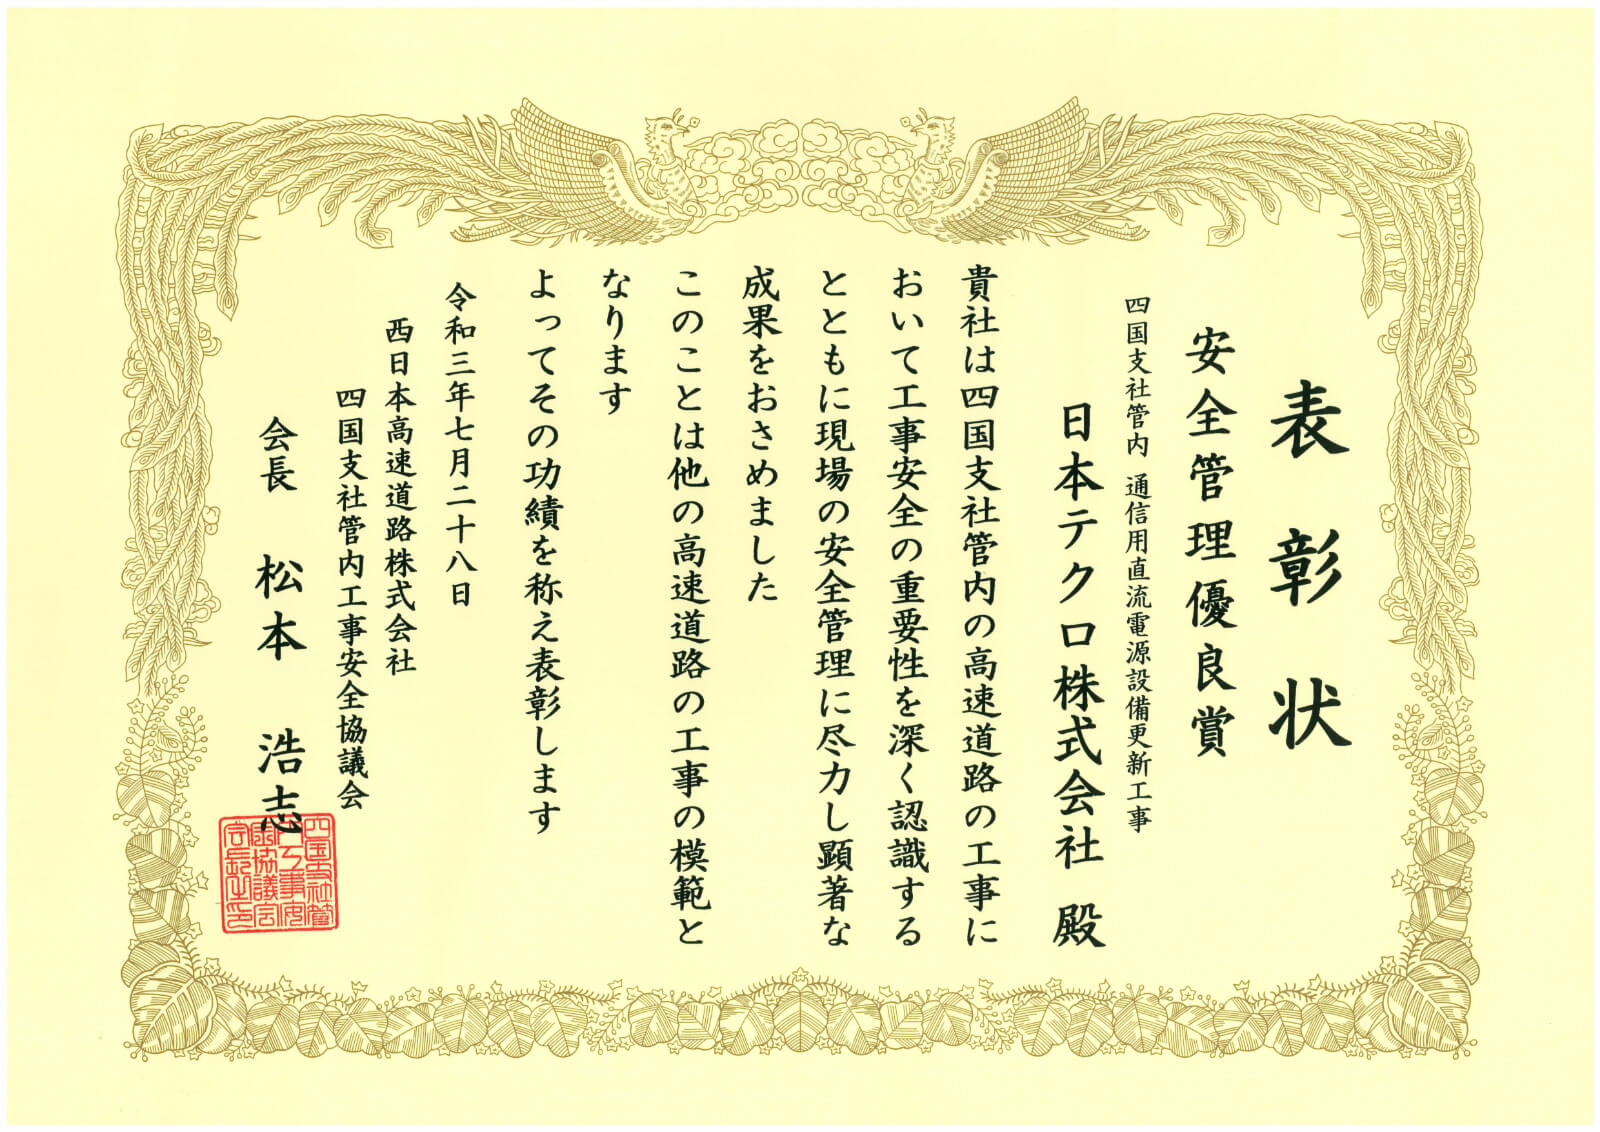 表彰状
安全管理優良賞
四国支社管内 通信用直流電源設備更新工事
日本テクロ株式会社 殿
貴社は四国支社管内の高速道路の工事に
おいて工事安全の重要性を深く認識する
とともに現場の安全管理に尽力し顕著な
成果をおさめました
このことは他の高速道路の工事の模範と
なります
よってその功績を称え表彰します
令和三年七月二十八日
西日本高速道路株式会社
四国支社管内工事安全協議会
会長 松本 浩志
四国支社管
内工事安
全協議会
会長之印